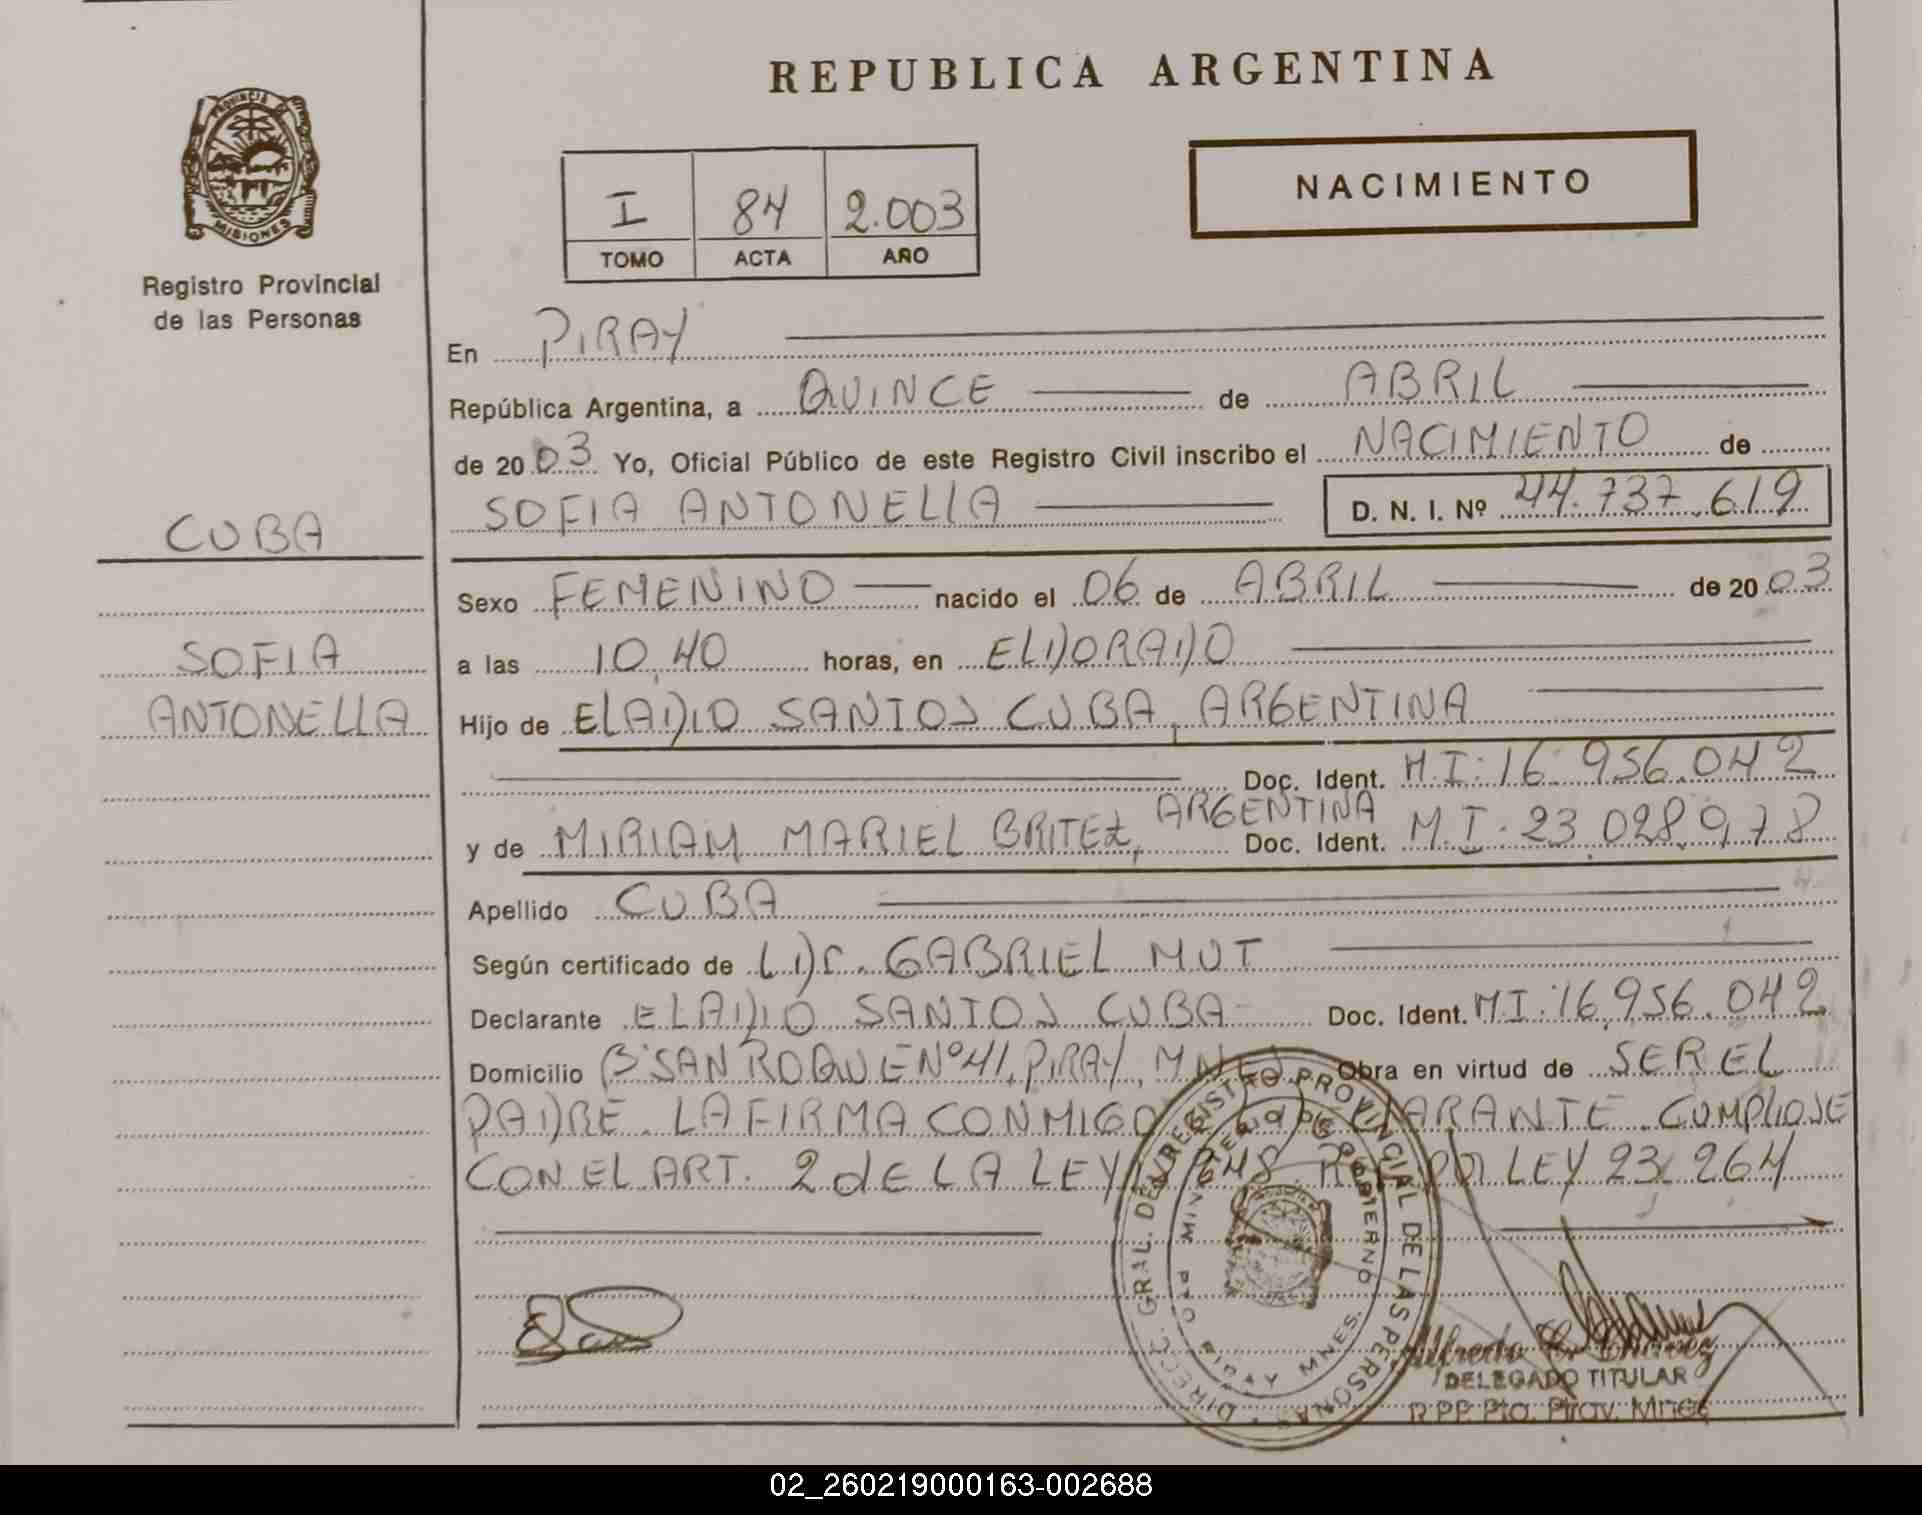 REPUBLICA ARGENTINA
PROVINCIA DE
MISIONES
Registro Provincial
de las Personas
I 84 2.003
TOMO ACTA AÑO
NACIMIENTO
En PIRAY
República Argentina, a QUINCE de ABRIL
de 20 03 Yo, Oficial Público de este Registro Civil inscribo el NACIMIENTO de
SOFIA ANTONELLA D. N. I. Nº 44.737.619
CUBA
SOFIA
ANTONELLA
Sexo FEMENINO nacido el 06 de ABRIL de 20 03
a las 10,40 horas, en ELDORADO
Hijo de ELADIO SANTOS CUBA, ARGENTINA
Doc. Ident. M.I: 16.956.042
y de MIRIAM MARIEL BRITEZ, ARGENTINA Doc. Ident. M.I. 23.028.978
Apellido CUBA
Según certificado de GABRIEL MUT
Declarante ELADIO SANTOS CUBA Doc. Ident. M I: 16.956.042
Domicilio Bº SAN ROQUE Nº 41, PIRAY, MNES Obra en virtud de SER EL
PADRE. LA FIRMA CONMIGO ARANTE CUMPLIOSE
CON EL ART. 2 dE LA LEY LEY 23.264
DIRECC. GRAL. DEL REGISTRO PROVINCIAL DE LAS PERSONAS
MINISTERIO DE GOBIERNO
PTO PIRAY MNES.
Alfredo C. Chavez
DELEGADO TITULAR
R.P.P. Pto. Piray. Mnes
02_260219000163-002688